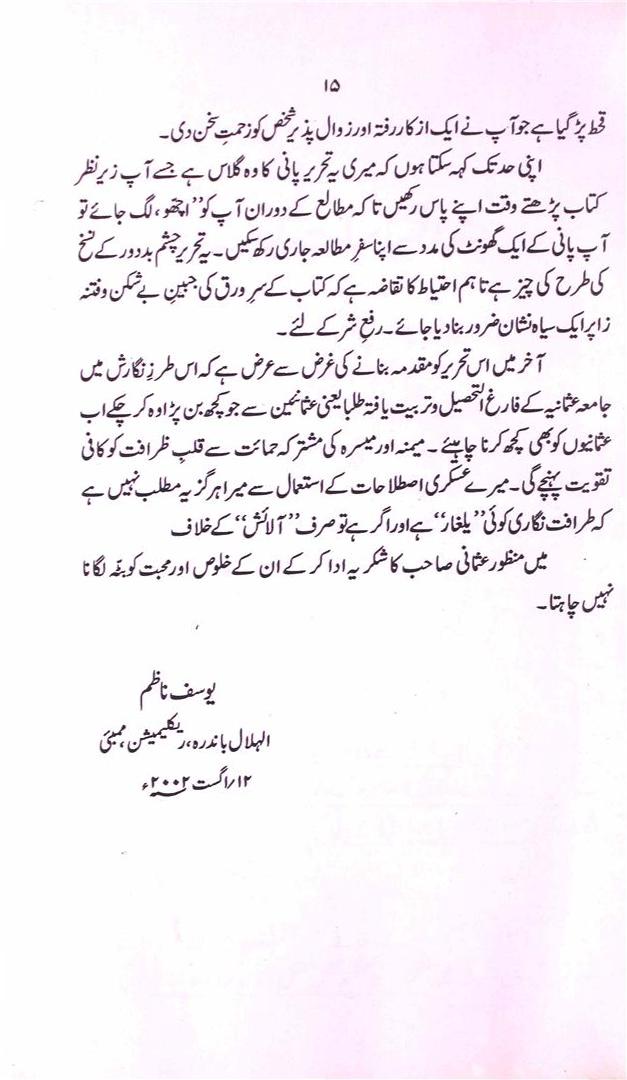 ۱۵
قحط پڑ گیا ہے جو آپ نے ایک از کار رفتہ اور زوال پذیر شخص کو زحمتِ سخن دی۔
اپنی حد تک کہہ سکتا ہوں کہ میری یہ تحریر پانی کا وہ گلاس ہے جسے آپ زیر نظر
کتاب پڑھتے وقت اپنے پاس رکھیں تاکہ مطالع کے دوران آپ کو ’’اچھّو، لگ جائے تو
آپ پانی کے ایک گھونٹ کی مدد سے اپنا سفرِ مطالعہ جاری رکھ سکیں۔ یہ تحریر چشم بددور کے نسخ
کی طرح کی چیز ہے تاہم احتیاط کا تقاضہ ہے کہ کتاب کے سرِورق کی جبینِ بے شکن و فتنہ
زا پر ایک سیاہ نشان ضرور بنا دیا جائے۔ رفعِ شر کے لئے۔
آخر میں اس تحریر کو مقدمہ بنانے کی غرض سے عرض ہے کہ اس طرزِ نگارش میں
جامعہ عثمانیہ کے فارغ التحصیل و تربیت یافتہ طلبا یعنی عثمائین سے جو کچھ بن پڑا وہ کر چکے اب
عثمانیوں کو بھی کچھ کرنا چاہئیے۔ میمنہ اور میسرہ کی مشترکہ حمائت سے قلبِ ظرافت کو کافی
تقویت پہنچے گی۔ میرے عسکری اصطلاحات کے استعمال سے میرا ہرگز یہ مطلب نہیں ہے
کہ ظرافت نگاری کوئی ’’یلغار‘‘ ہے اور اگر ہے تو صرف ’’آلائش‘‘ کے خلاف
میں منظور عثمانی صاحب کا شکریہ ادا کر کے ان کے خلوص اور محبت کو بٹّہ لگانا
نہیں چاہتا۔
یوسف ناظم
الہلال باندرہ، ریکلیمیشن، ممبئی
۱۲/اگست ۲۰۰۲ء